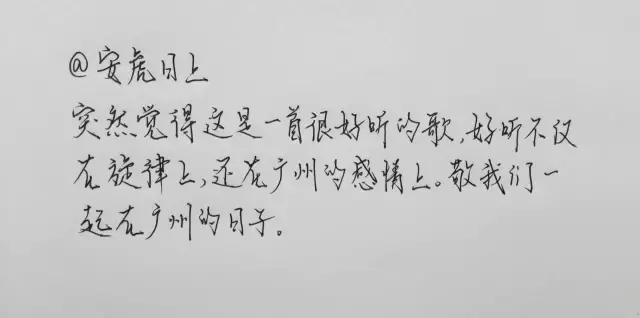 @安虎日上
突然觉得这是一首很好听的歌,好听不仅
在旋律上,还在广州的感情上。敬我们一
起在广州的日子。